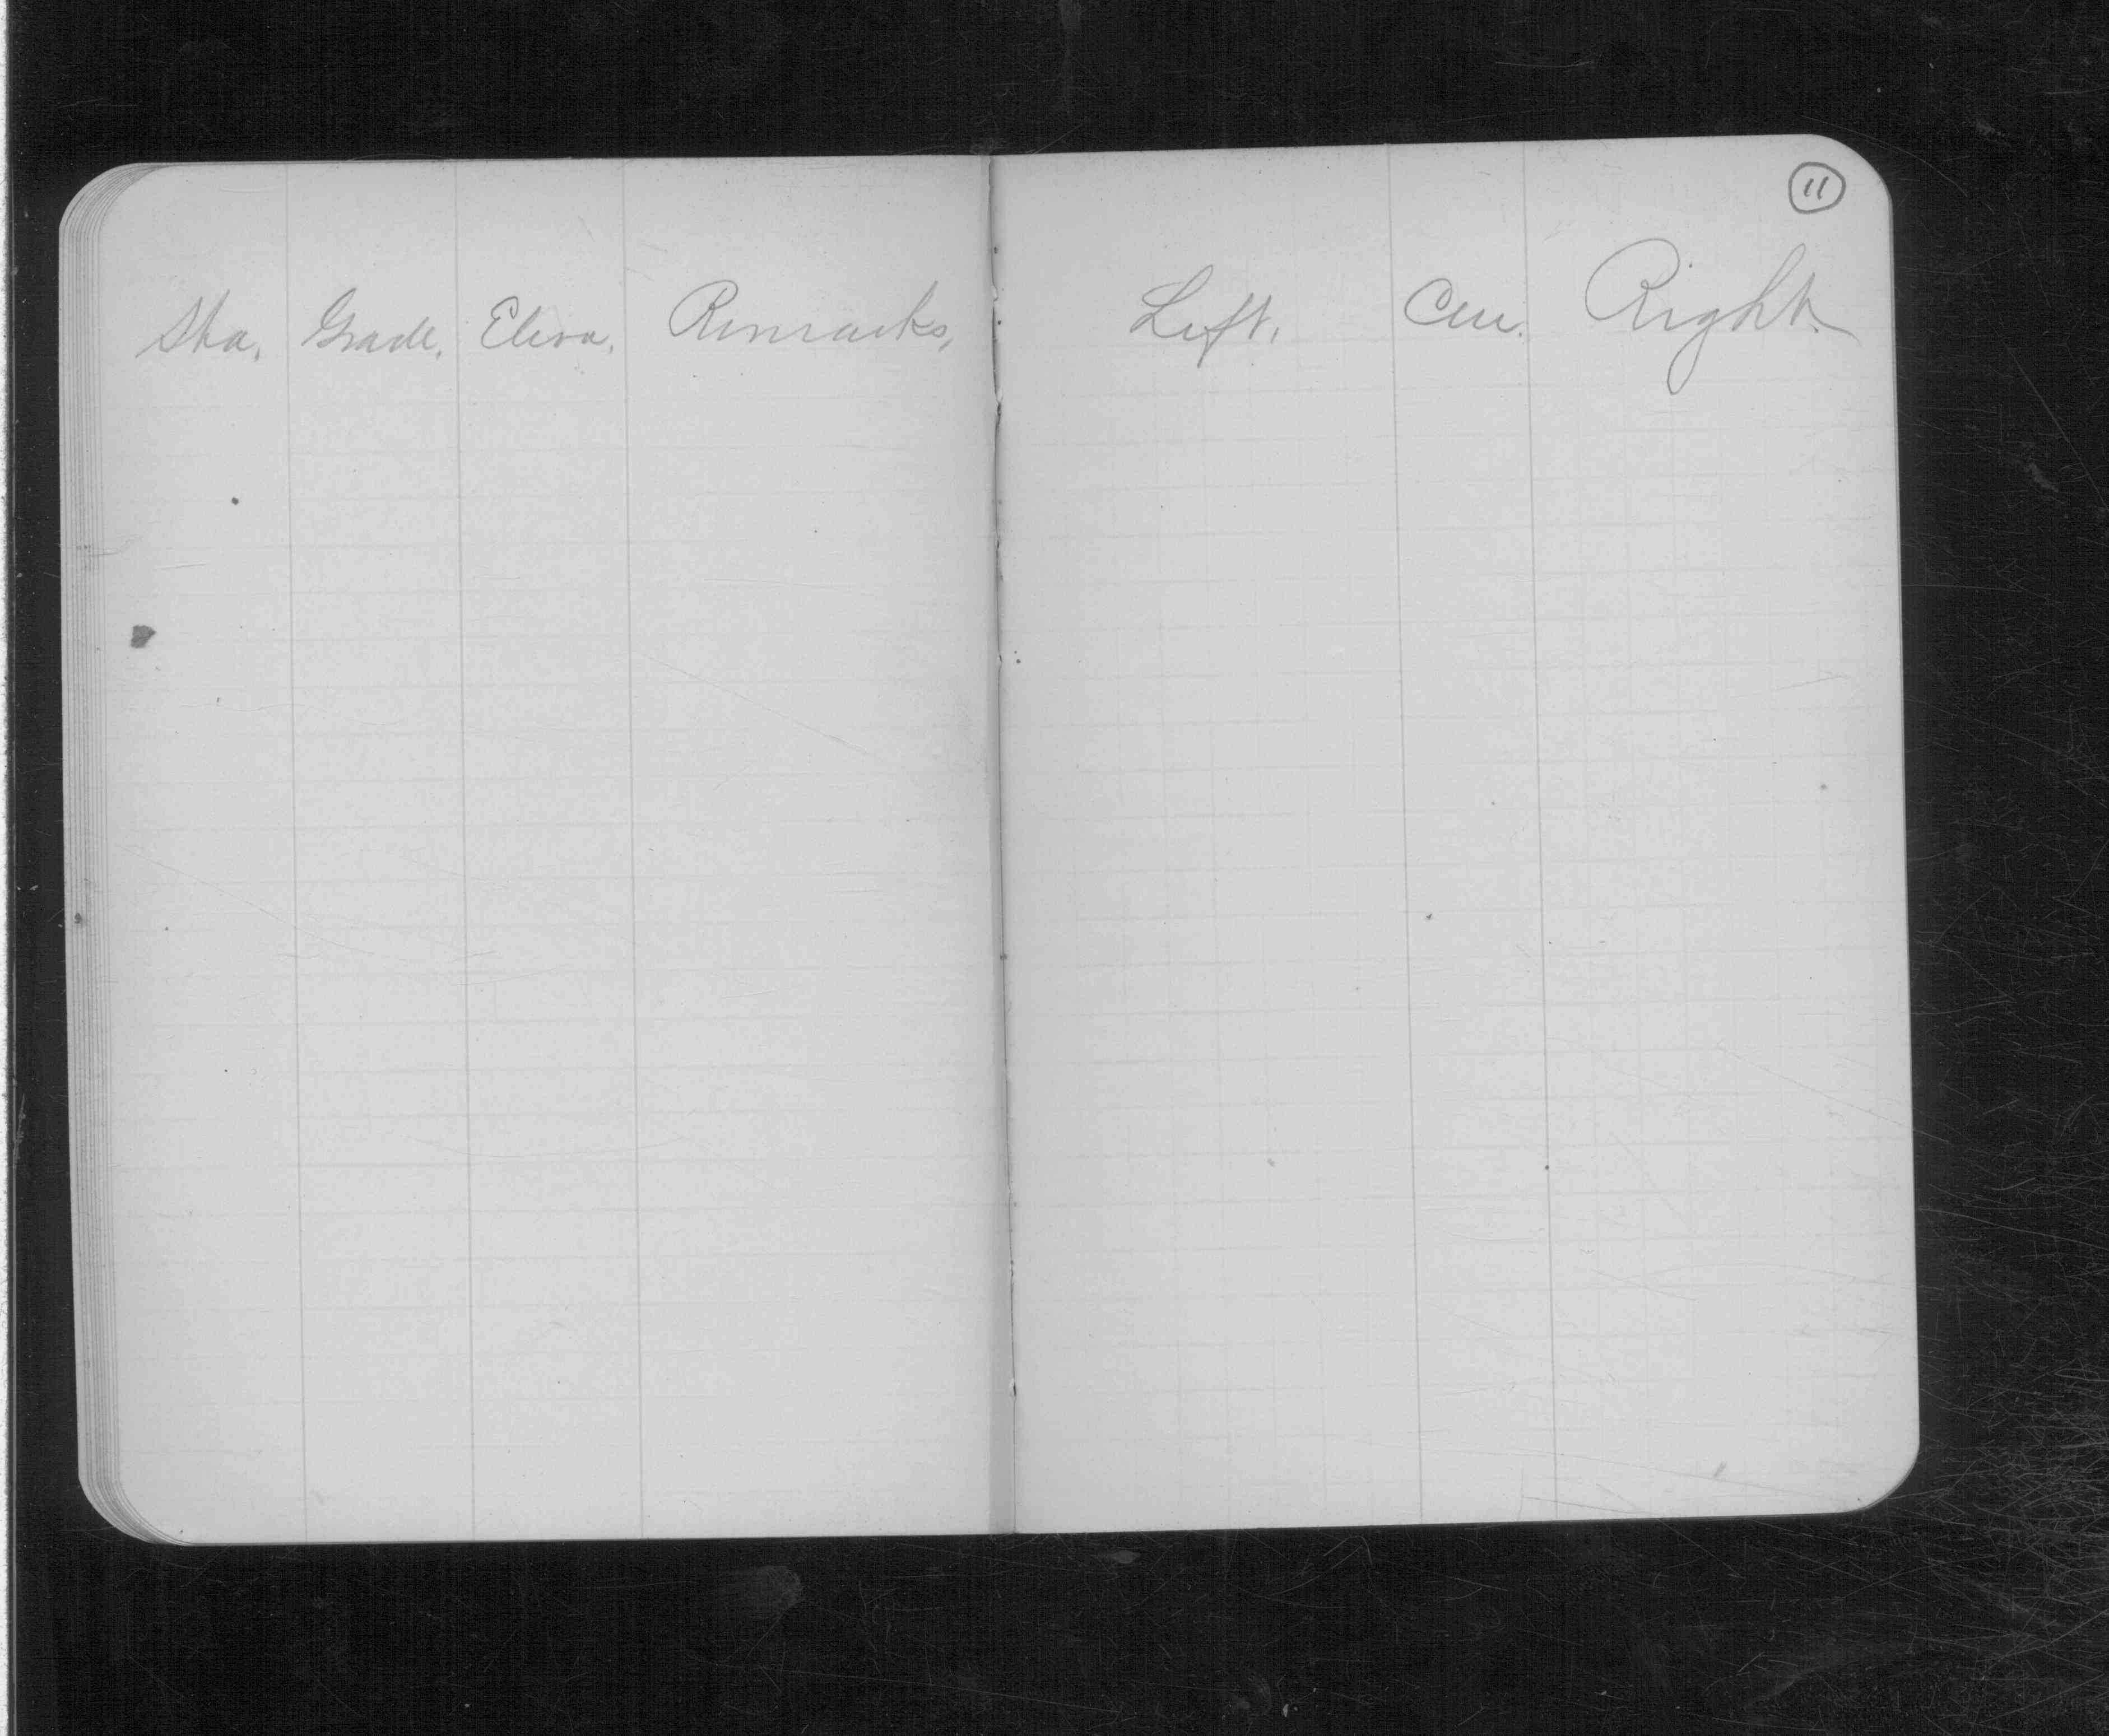 11
Sta. Grade. Eleva. Remarks, Left. Cen. Right.